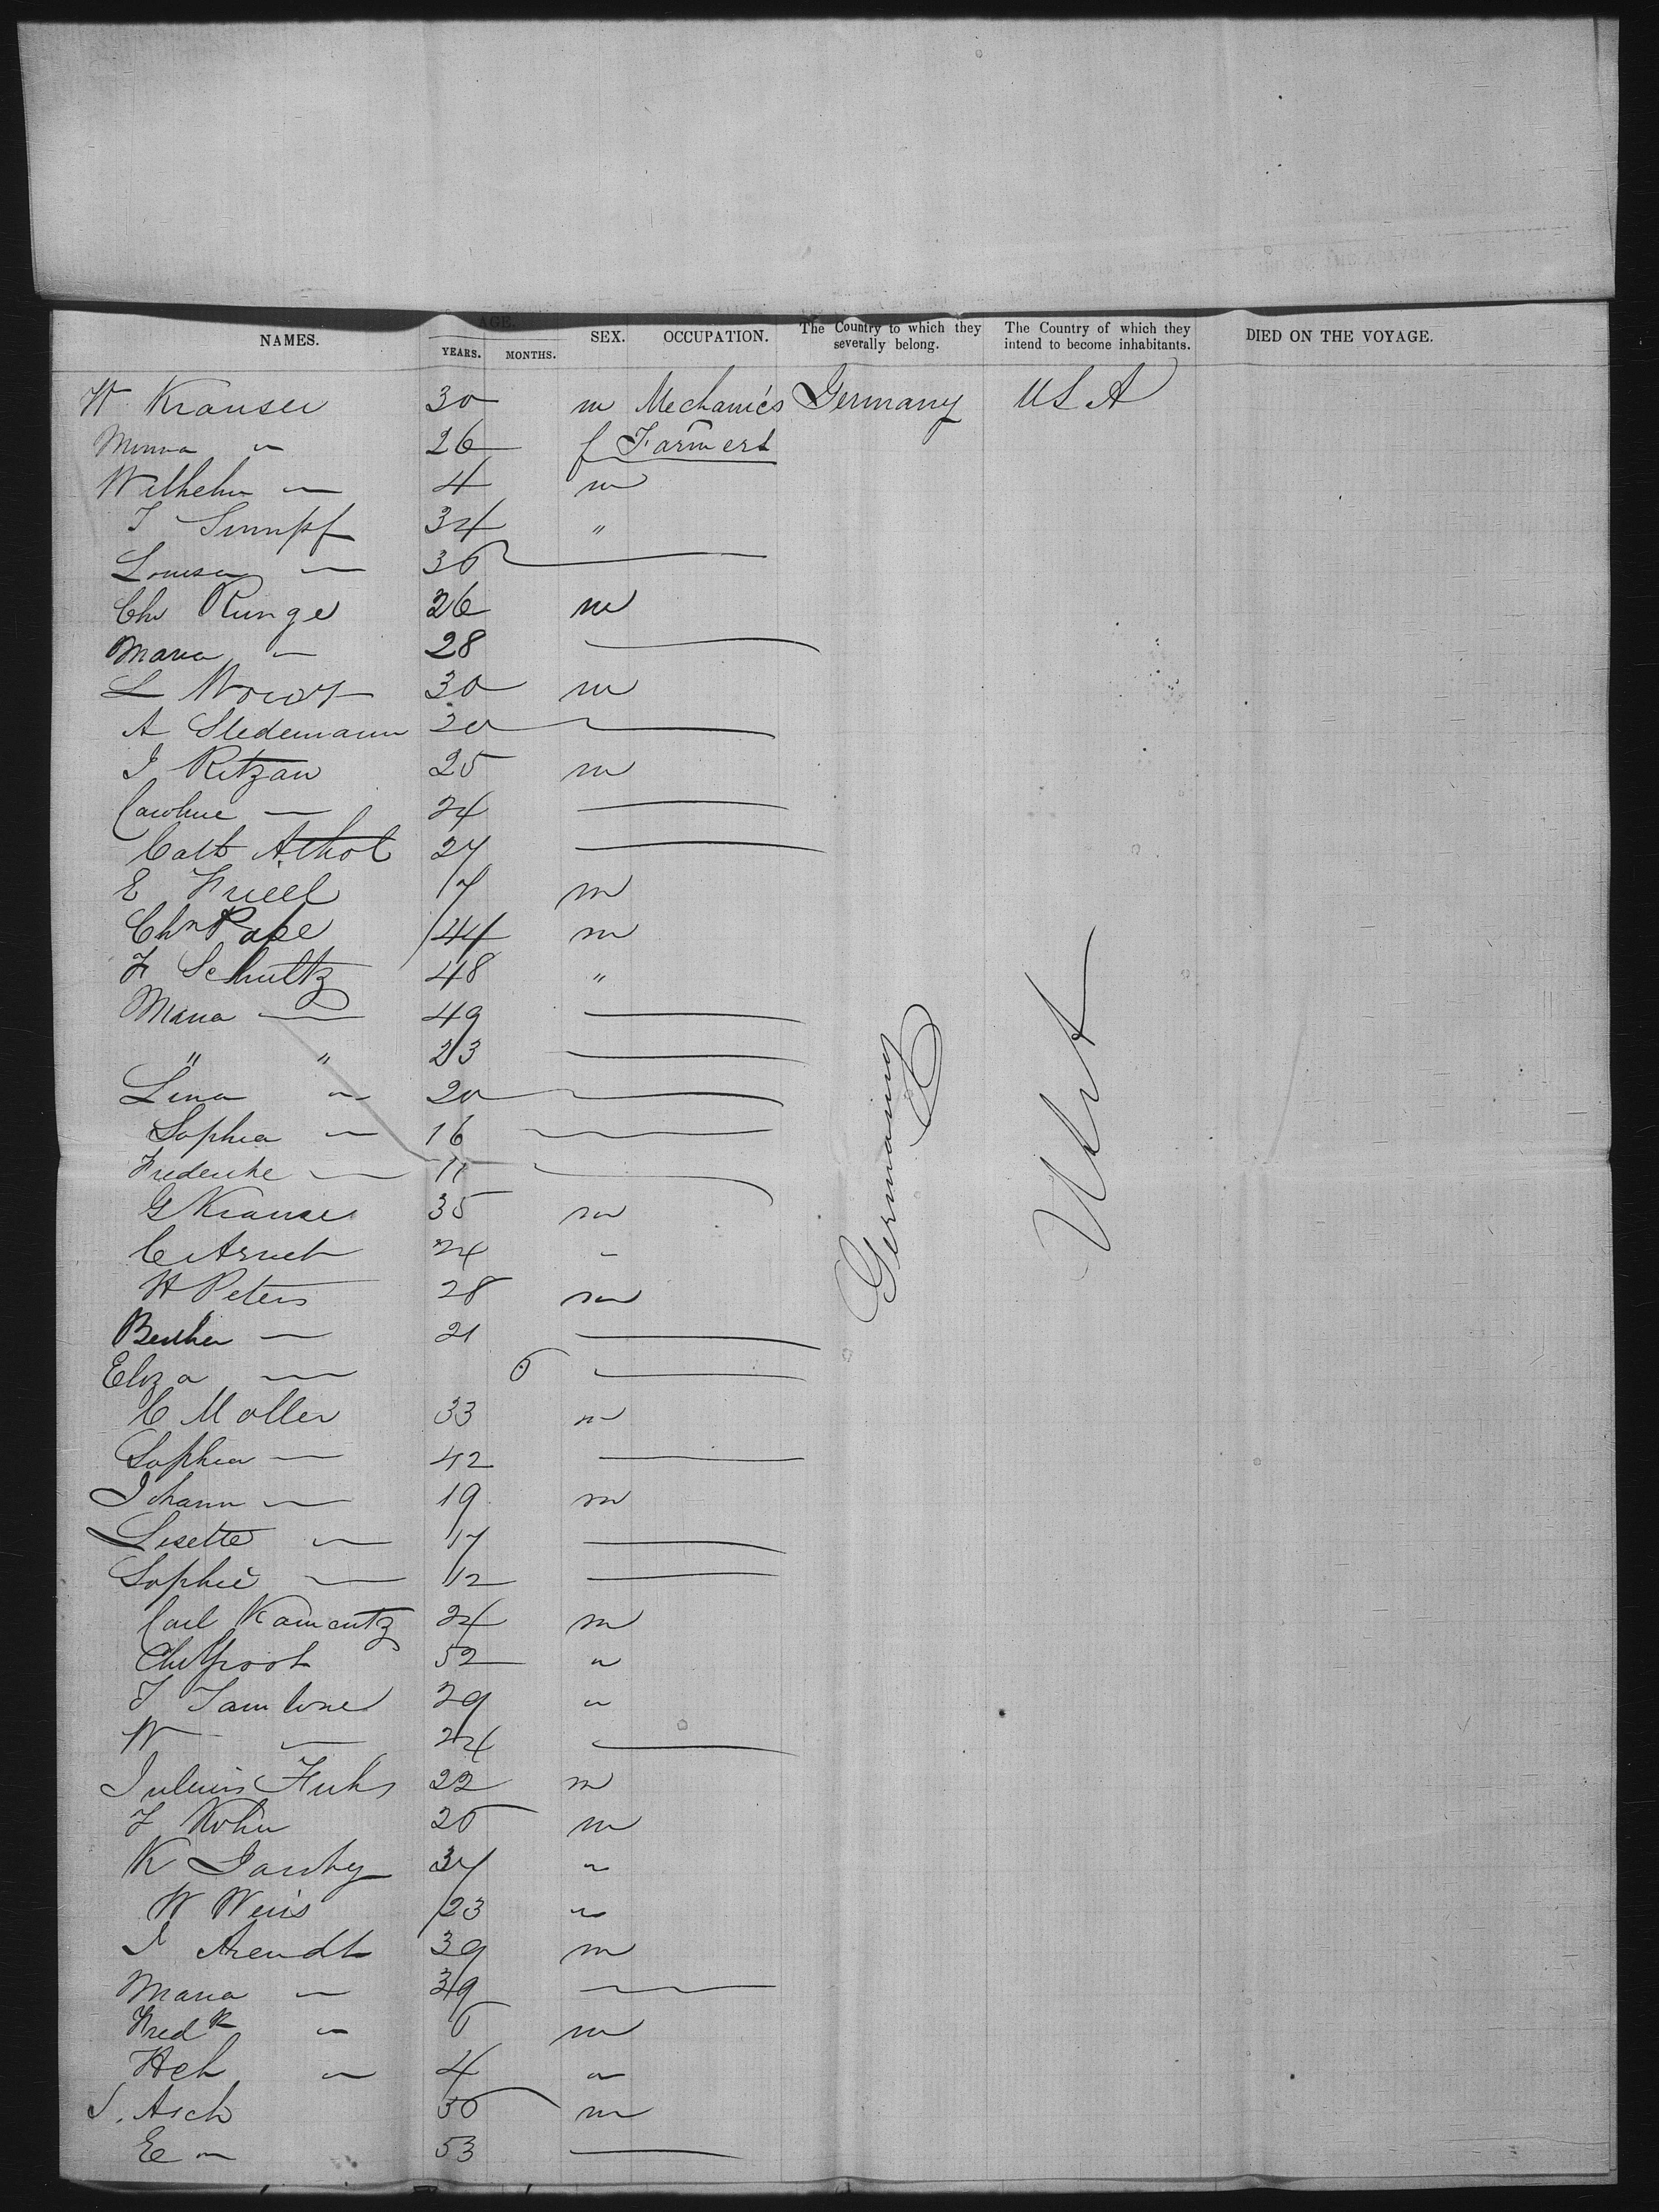 NAMES. AGE. YEARS. MONTHS. SEX. OCCUPATION. The Country to which they severally belong. The Country of which they intend to become inhabitants. DIED ON THE VOYAGE.
W Krauser 30 m Mechanics Germany USA
Minna " 26 f Farmers
Wilhelm — 4 m
34 "
Louisa — 36
Chr Runge 26 m
Maria — 28
L 30 m
A Stedemann 20
J Ritzau 25 m
Caroline — 24
27
E 17 m
Chn Pape 44 m
F Schultz 48 "
Maria — 49
" " 23
Lina — 20
Sophia — 16
Frederike — 11
G Krause 35 m
C 24 "
H Peters 28 m
Bertha — 21
Eliza — 6
C Moller 33 m
Sophia — 42
Johann — 19 m
Lisette — 17
Sophie — 12
Carl 24 m
52 "
29 "
W — 24
Julius Fuhs 22 m
F Kohn 26 m
K 34 "
W Weiis 23 "
J Arendt 39 m
Maria — 39
Fredk — 6 m
Hch — 4 "
S. Asch 56 m
— 53
Germany
USA